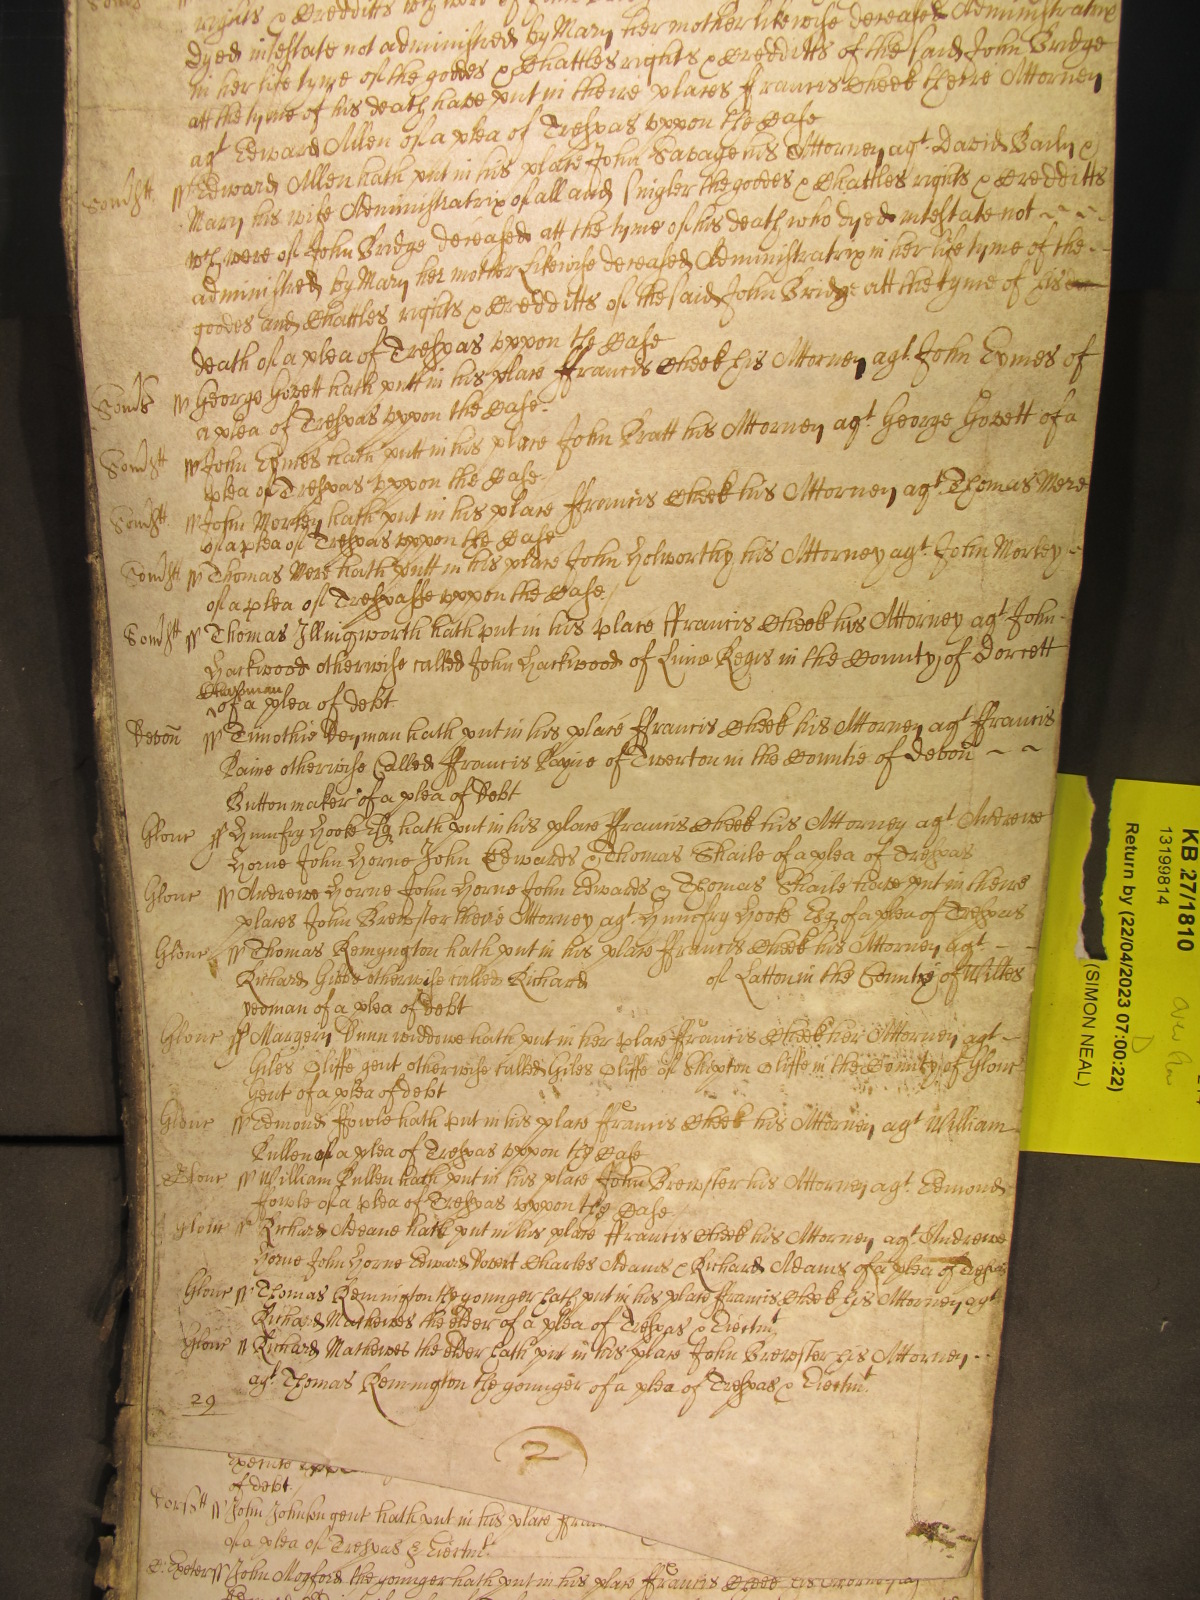 rights & Credditts
dyed intestate not administred by Mary her mother likewise deceased Administratrix
in her life tyme of the goodes & Chattles rights & Credditts of the said John Bridge
att the tyme of his death have put in theire places ffrancis Cheek theire Attorney
agt Edward Allen of a plea of Trespas uppon the Case
Somst ss Edward Allen hath put in his place John Savage his Attorney agt David Baily &
Mary his wife Administratrix of all and singler the goodes & Chattles rights & Credditts
wch were of John Bridge deceased att the tyme of his death who dyed intestate not
administred by Mary her mother likewise deceased Administratrix in her life tyme of the
goodes and Chattles rights & Credditts of the said John Bridge att the tyme of his
death of a plea of Trespas uppon the Case
Somst ss George Govett hath putt in his place ffrancis Cheek his Attorney agt John Eymes of
a plea of Trespas uppon the Case
Somst ss John Eymes hath putt in his place John Pratt his Attorney agt George Govett of a
plea of Trespas uppon the Case
Somst ss John Morley hath put in his place ffrancis Cheek his Attorney agt Thomas Mere
of a plea of Trespas uppon the Case
Somst ss Thomas Mere hath putt in his place John Holworthy his Attorney agt John Morley
of a plea of Trespasse uppon the Case
Somst ss Thomas Illingworth hath put in his place ffrancis Cheek his Attorney agt John
Harkwood otherwise called John Harkwood of Lime Regis in the County of Dorcett
Chapman
of a plea of debt
Devon ss Timothie Deyman hath put in his place ffrancis Cheek his Attorney agt ffrancis
Paine otherwise Called ffrancis Payne of Twerton in the Countie of Devon
Buttonmaker of a plea of Debt
Glouc ss Humfry Hooke Esq hath put in his place ffrancis Cheek his Attorney agt Andrewe
Horne John Horne John Edwards & Thomas Shaile of a plea of Trespas
Glouc ss Andrewe Horne John Horne John Edwards & Thomas Shaile have put in theire
places John Brewster theire Attorney agt Humfry Hooke Esq of a plea of Trespas
Glouc ss Thomas Remyngton hath put in his place ffrancis Cheek his Attorney agt
Richard Gibbs otherwise called Richard of Latton in the County of Wiltes
yeoman of a plea of debt
Glouc ss Margery Dunn widdowe hath put in her place ffrancis Cheek her Attorney agt
Giles Oliffe gent otherwise called Giles Oliffe of Shipton Oliffe in the County of Glouc
Gent of a plea of debt
Glouc ss Edmond ffowle hath put in his place ffrancis Cheek his Attorney agt William
Pullen of a plea of Trespas uppon the Case
Glouc ss William Pullen hath put in his place John Brewster his Attorney agt Edmond
fowle of a plea of Trespas uppon the Case
Glouc ss Richard Adeane hath put in his place ffrancis Cheek his Attorney agt Andrewe
Horne John Horne Edward Charles Adams & Richard Adams of a plea of Trespas
Glouc ss Thomas Remington the younger hath put in his place ffrancis Cheek his Attorney agt
Richard Mathewes the elder of a plea of Trespas & Eiectmt
Glouc ss Richard Mathewes the elder hath put in his place John Brewster his Attorney
agt Thomas Remington the younger of a plea of Trespas & Eiectmt
29
2
of debt
Dorstt ss John Johnson gent hath put in his place ffran
of a plea of Trespas & Eiectmt
C: Exeter ss John Mogford the younger hath put in his place ffrancis Cheek his Attorney
KB 27/1810
13199814
Return by (22/04/2023 07:00:22)
(SIMON NEAL)
D